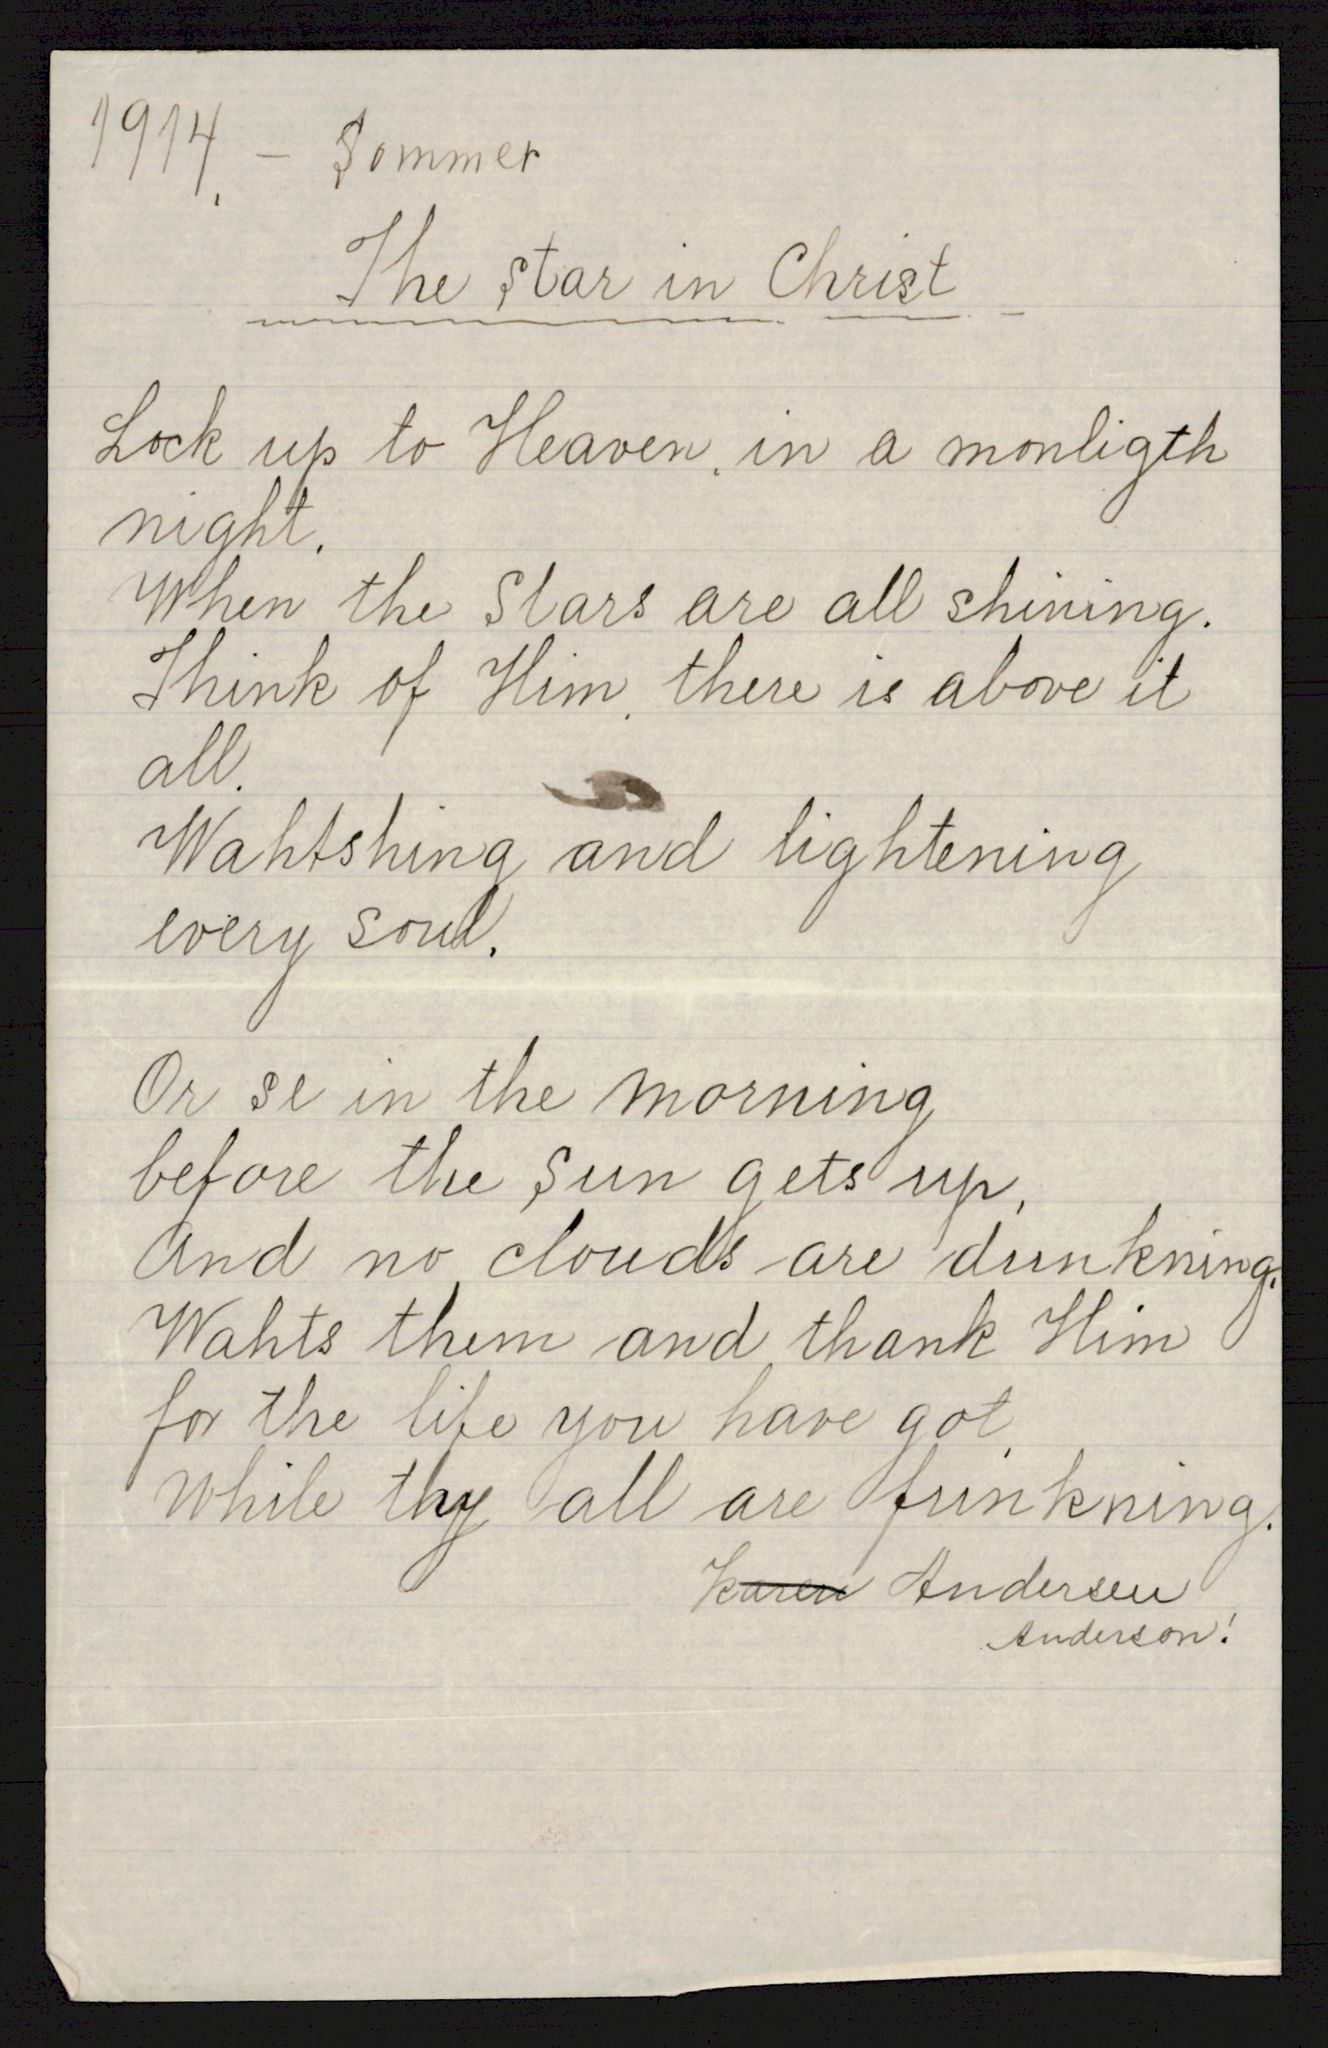 1914. - Sommer
The Star in Christ
Lock up to Heaven, in a monligth
night.
When the Stars are all shining.
Think of Him, there is above it
all.
Wahtshing and lightening
every soul.
Or se in the morning
before the Sun gets up,
And no clouds are dunkning.
Wahts them and thank Him
for the life you have got,
While thy all are funkning.
Karen Andersen
Anderson!